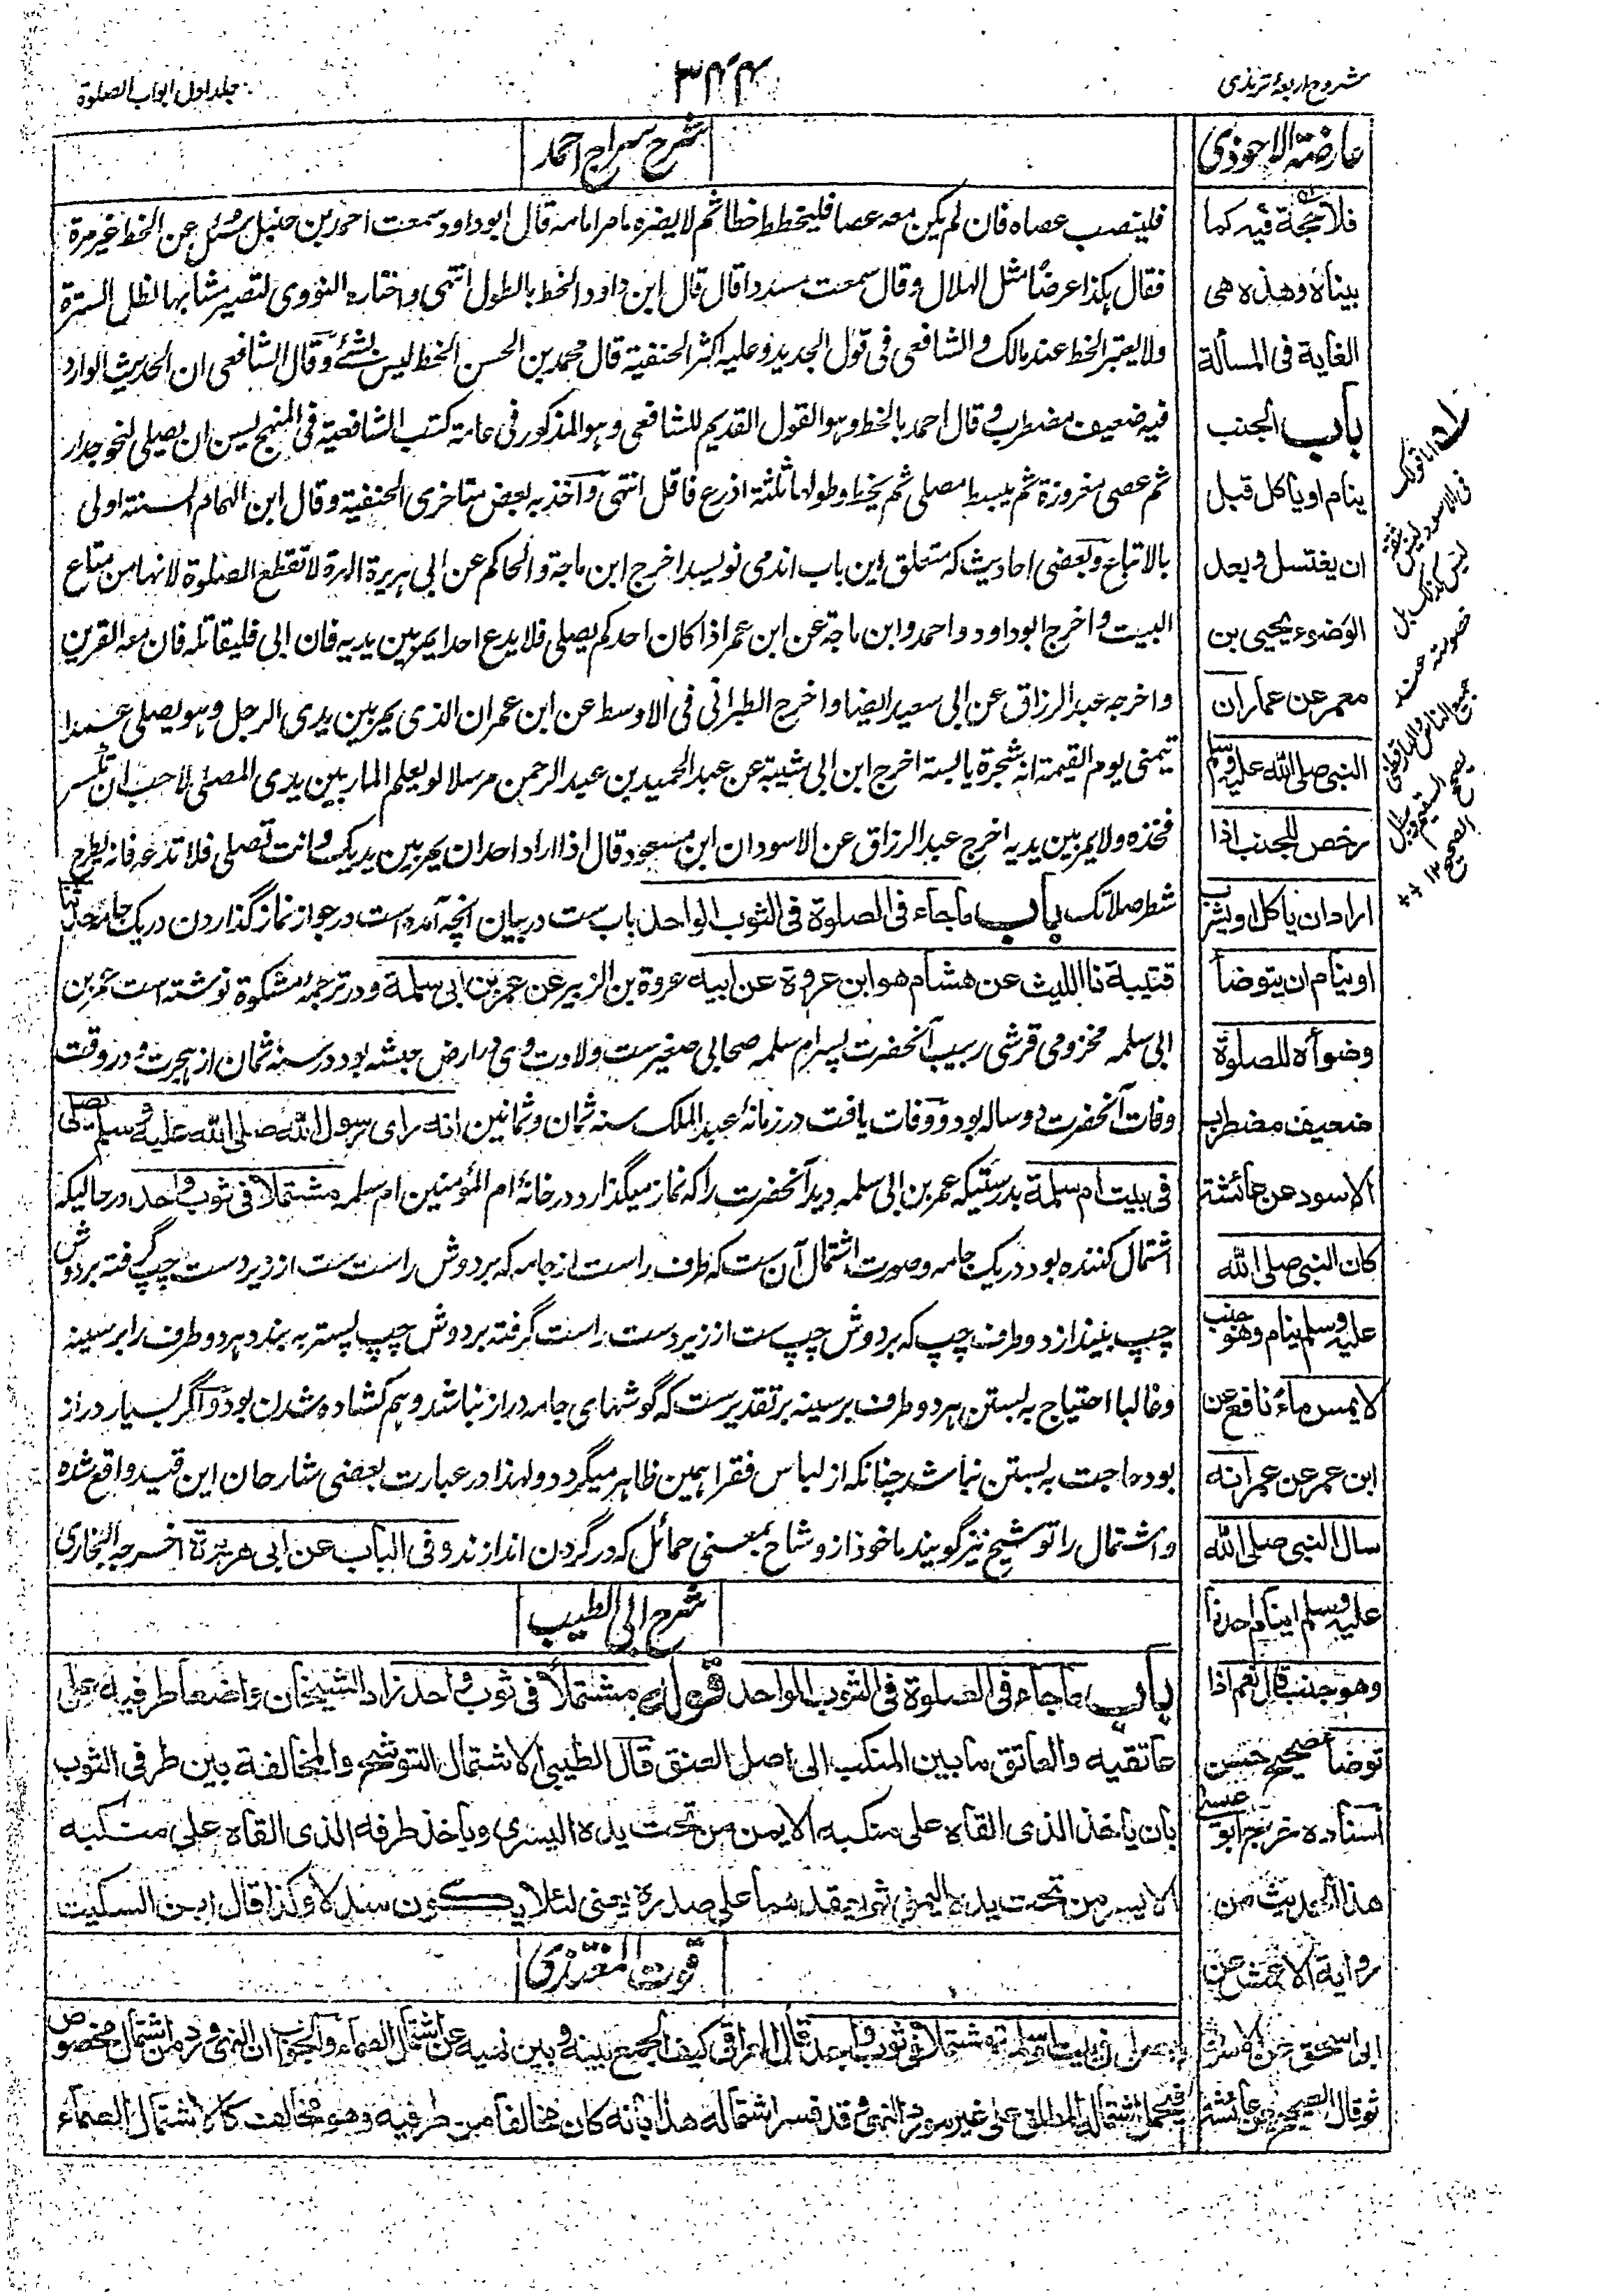 شروح اربعۂ ترمذی
۳۴۴
جلد اول ابواب الصلوة
عارضة الاحوذی
فلا حجة فیه کما
بیناه وهذه هی
الغایة فی المسألة
باب الجنب
ینام او یأکل قبل
ان یغتسل وبعد
الوضوء یحیی بن
معمر عن عمار ان
النبی صلی الله علیه وسلم
رخص للجنب اذا
اراد ان یاکل او یشرب
او ینام ان یتوضأ
وضوأه للصلوة
ضعیف مضطرب
الاسود عن عائشة
کان النبی صلی الله
علیه وسلم ینام وهو جنب
لا یمس ماء نافع عن
ابن عمر عن عمر انه
سال النبی صلی الله
علیه وسلم اینام احدنا
وهو جنب قال نعم اذا
توضأ صحیح حسن
اسناده خرج ابو عیسی
هذا الحدیث من
روایة الاعمش عن
ابی اسحق عن الاسود
ثم قال الصحیح عن عائشة
شرح سراج احمد
فلینصب عصاه فان لم یکن معه عصا فلیخطط خطا ثم لا یضره ما مر امامه قال ابو داود سمعت احمد بن حنبل سئل عن الخط غیر مرة
فقال هکذا عرضا مثل الهلال وقال سمعت مسددا قال قال ابن داود الخط بالطول انتهی واختاره النووی لتصیر مشابها لظل السترة
ولا یعتبر الخط عند مالک والشافعی فی قول الجدید وعلیه اکثر الحنفیة قال محمد بن الحسن الخط لیس بشئ وقال الشافعی ان الحدیث الوارد
فیه ضعیف مضطرب وقال احمد بالخط وهو القول القدیم للشافعی وهو المذکور فی عامة کتب الشافعیة فی المنهج یسن ان یصلی لنحو جدار
ثم عصی مغروزة ثم یبسط مصلی ثم یخط وطولها ثلثة اذرع فاقل انتهی وأخذ به بعض متاخری الحنفیة وقال ابن الهمام السنة اولی
بالاتباع وبعضی احادیث که متعلق این باب اند می نویسد اخرج ابن ماجة والحاکم عن ابی هریرة الهرة لا تقطع الصلوة لانها من متاع
البیت واخرج ابو داود واحمد وابن ماجة عن ابن عمر اذا کان احدکم یصلی فلا یدع احدا یمر بین یدیه فان ابی فلیقاتله فان معه القرین
واخرجه عبد الرزاق عن ابی سعید ایضا واخرج الطبرانی فی الاوسط عن ابن عمر ان الذی یمر بین یدی الرجل وهو یصلی عمدا
یتمنی یوم القیمة انه شجرة یابسة اخرج ابن ابی شیبة عن عبد الحمید بن عبد الرحمن مرسلا لو یعلم المار بین یدی المصلی لاحب ان تکسر
فخذه ولا یمر بین یدیه اخرج عبد الرزاق عن الاسود ان ابن مسعود قال اذا اراد احد ان یمر بین یدیک وانت تصلی فلا تدعه فانه یطرح
شطر صلاتک باب ما جاء فی الصلوة فی الثوب الواحد باب ست در بیان آنچه آمده است در جواز نماز گذاردن در یک جامه حدثنا
قتیبة نا اللیث عن هشام هو ابن عروة عن ابیه عروة بن الزبیر عن عمر بن ابی سلمة ودر ترجمۂ مشکوة نوشته است عمر بن
ابی سلمه مخزومی قرشی ربیب آنحضرت پسر ام سلمه صحابی صغیرست ولادت وی در ارض حبشه بود در سنه ثمان از هجرت ودر وقت
وفات آنحضرت نه ساله بود ووفات یافت در زمانۂ عبد الملک سنه ثمان وثمانین انه رای رسول الله صلی الله علیه وسلم یصلی
فی بیت ام سلمة بدرستیکه عمر بن ابی سلمه دید آنحضرت را که نماز میگذارد در خانۂ ام المؤمنین ام سلمه مشتملا فی ثوب واحد در حالیکه
اشتمال کننده بود در یک جامه وصورت اشتمال آن ست که طرف راست از جامه که بر دوش راست ست از زیر دست چپ گرفته بر دوش
چپ بیندازد وطرف چپ که بر دوش چپ ست از زیر دست راست گرفته بر دوش چپ پستر به بندد هر دو طرف را بر سینه
وغالبا احتیاج به بستن هر دو طرف بر سینه بر تقدیر ست که گوشهای جامه دراز نباشد وبیم کشاده شدن بود واگر بسیار دراز
بود حاجت به بستن نباشد چنانکه از لباس فقرا همین ظاهر میگردد ولهذا در عبارت بعضی شارحان این قید واقع شده
واشتمال را توشیح نیز گویند ماخوذ از وشاح بمعنی حمائل که در گردن اندازند وفی الباب عن ابی هریرة اخرجه البخاری
شرح ابی الطیب
باب ما جاء فی الصلوة فی الثوب الواحد قوله مشتملا فی ثوب واحد زاد الشیخان واضعا طرفیه علی
عاتقیه والعاتق ما بین المنکب الی اصل العنق قال الطیبی الاشتمال التوشح والمخالفة بین طرفی الثوب
بان یأخذ الذی القاه علی منکبه الایمن من تحت یده الیسری ویاخذ طرفه الذی القاه علی منکبه
الایسر من تحت یده الیمنی ثم یعقدهما علی صدره یعنی لئلا یکون سدلا وکذا قال ابن السکیت
قوت المغتذی
یصلی فی بیت ام سلمة مشتملا فی ثوب واحد قال العراقی کیف الجمع بینه وبین نهیه عن اشتمال الصماء والجواب ان النهی ورد من اشتمال مخصوص
فیحمل اشتماله المطلق علی غیر مورد النهی وقد فسر اشتماله هذا بانه کان مخالفا من طرفیه وهو مخالف کالاشتمال الصماء
اما قولک
فی الاسود لیس بثقة
لیس کذلک بل
هو ثقة عند
جمیع الناس والدارقطنی
یصحح السقیم ویعلل
الصحیح ۱۲